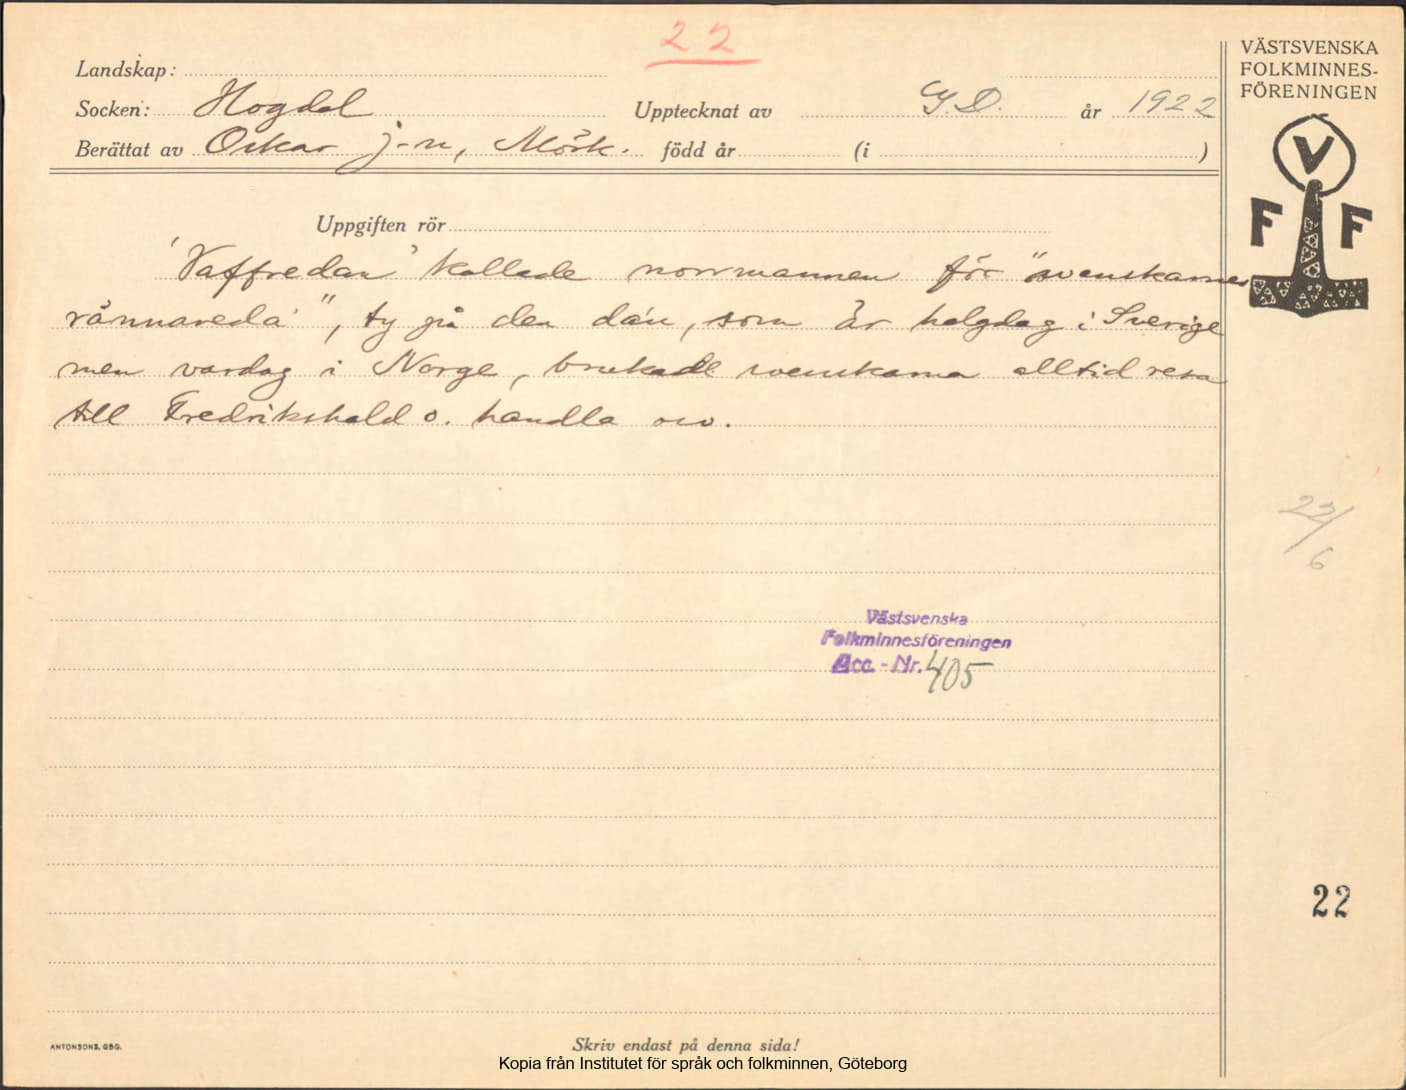 22
Landskap:
VÄSTSVENSKA
FOLKMINNES-
FÖRENINGEN
Socken: Hogdal Upptecknat av G. D. år 1922
Berättat av Oskar J-n, Mörk. född år (i )
V
F F
Uppgiften rör
'Vaffredan' kallade norrmannen för "svenskarnes
rännareda'", ty på den da'n, som är helgdag i Sverige
men vardag i Norge, brukade svenskarna alltid resa
till Fredrikshald o. handla osv.
22/6
Västsvenska
Folkminnesföreningen
Acc. - Nr. 405
22
ANTONSONS, GBG.
Skriv endast på denna sida!
Kopia från Institutet för språk och folkminnen, Göteborg